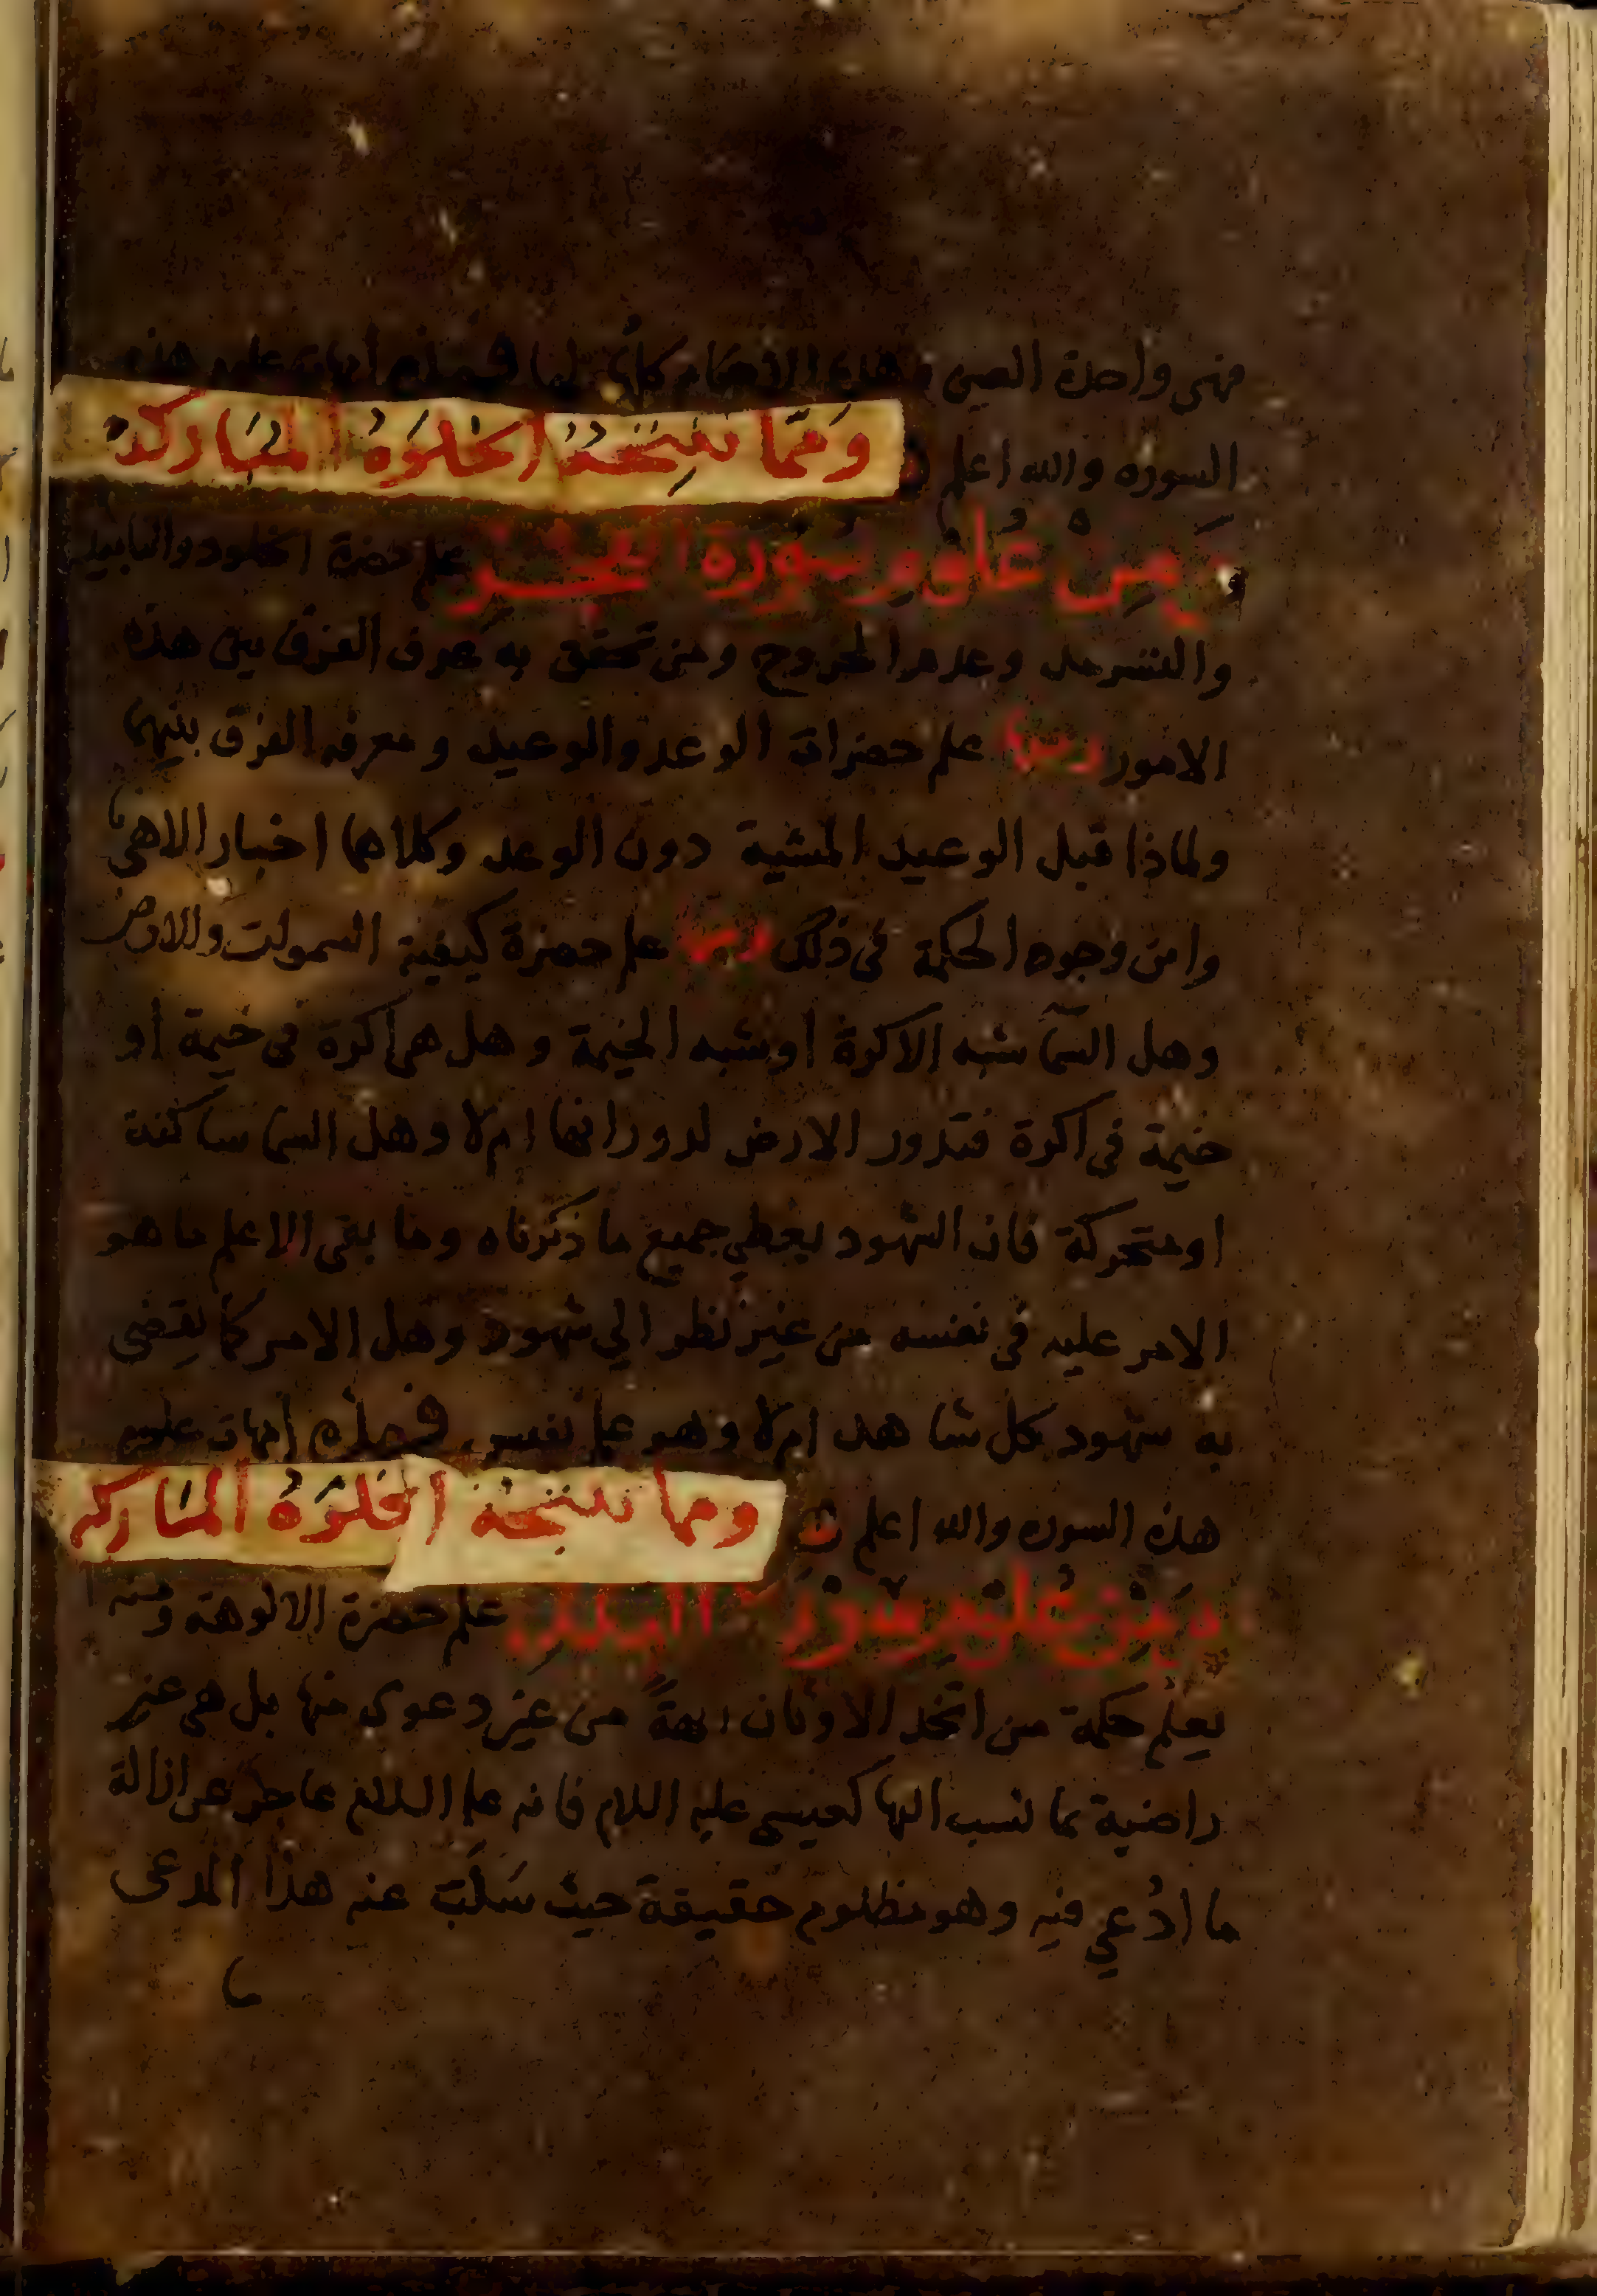 فهى واحدة العين وهذه الاحكام كلها لها فهذه أمهات علوم هذه
السوره والله اعلم ومما نتيجة الخلوة المباركة
من علوم سورة الحجر علم حضرة الخلود والتابيد
والتسرمد وعدم الخروج ومن تحقق به عرف الفرق بين هذه
الامور ومنها علم حضرات الوعد والوعيد ومعرفه الفرق بينهما
ولماذا قبل الوعيد المشية دون الوعد وكلاهما اخبار الاهى
واين وجوه الحكمة فى ذلك ومنها علم حضرة كيفية السموات والارض
وهل السمآ شبه الاكرة اوشبه الخيمة وهل هى اكرة فى خيمة أو
خيمة في اكرة فتدور الارض لدورانها ام لا وهل السما ساكنة
اومتحركة فان الشهود يعطي جميع ما ذكرناه وما بقى الا علم ما هو
الامر عليه في نفسه من غير نظر الي شهود وهل الامر كما يقضى
به شهود كل شاهد ام لا وهو علم نفيس فهذه أمهات علوم
هذه السوره والله اعلم ومما نتيجة الخلوة المباركه
من علوم سورة البلد علم حضرة الالوهة ومنه
يعلم حكمة من اتخذ الاوثان الهةً من غير دعوى منها بل هى غير
راضية بما نسب اليها كعيسى عليه السلام فانه عاجز عن ازالة
ما ادُعي فيه وهو مظلوم حقيقة حيث سَلَبَ عنه هذا المدعى
ما